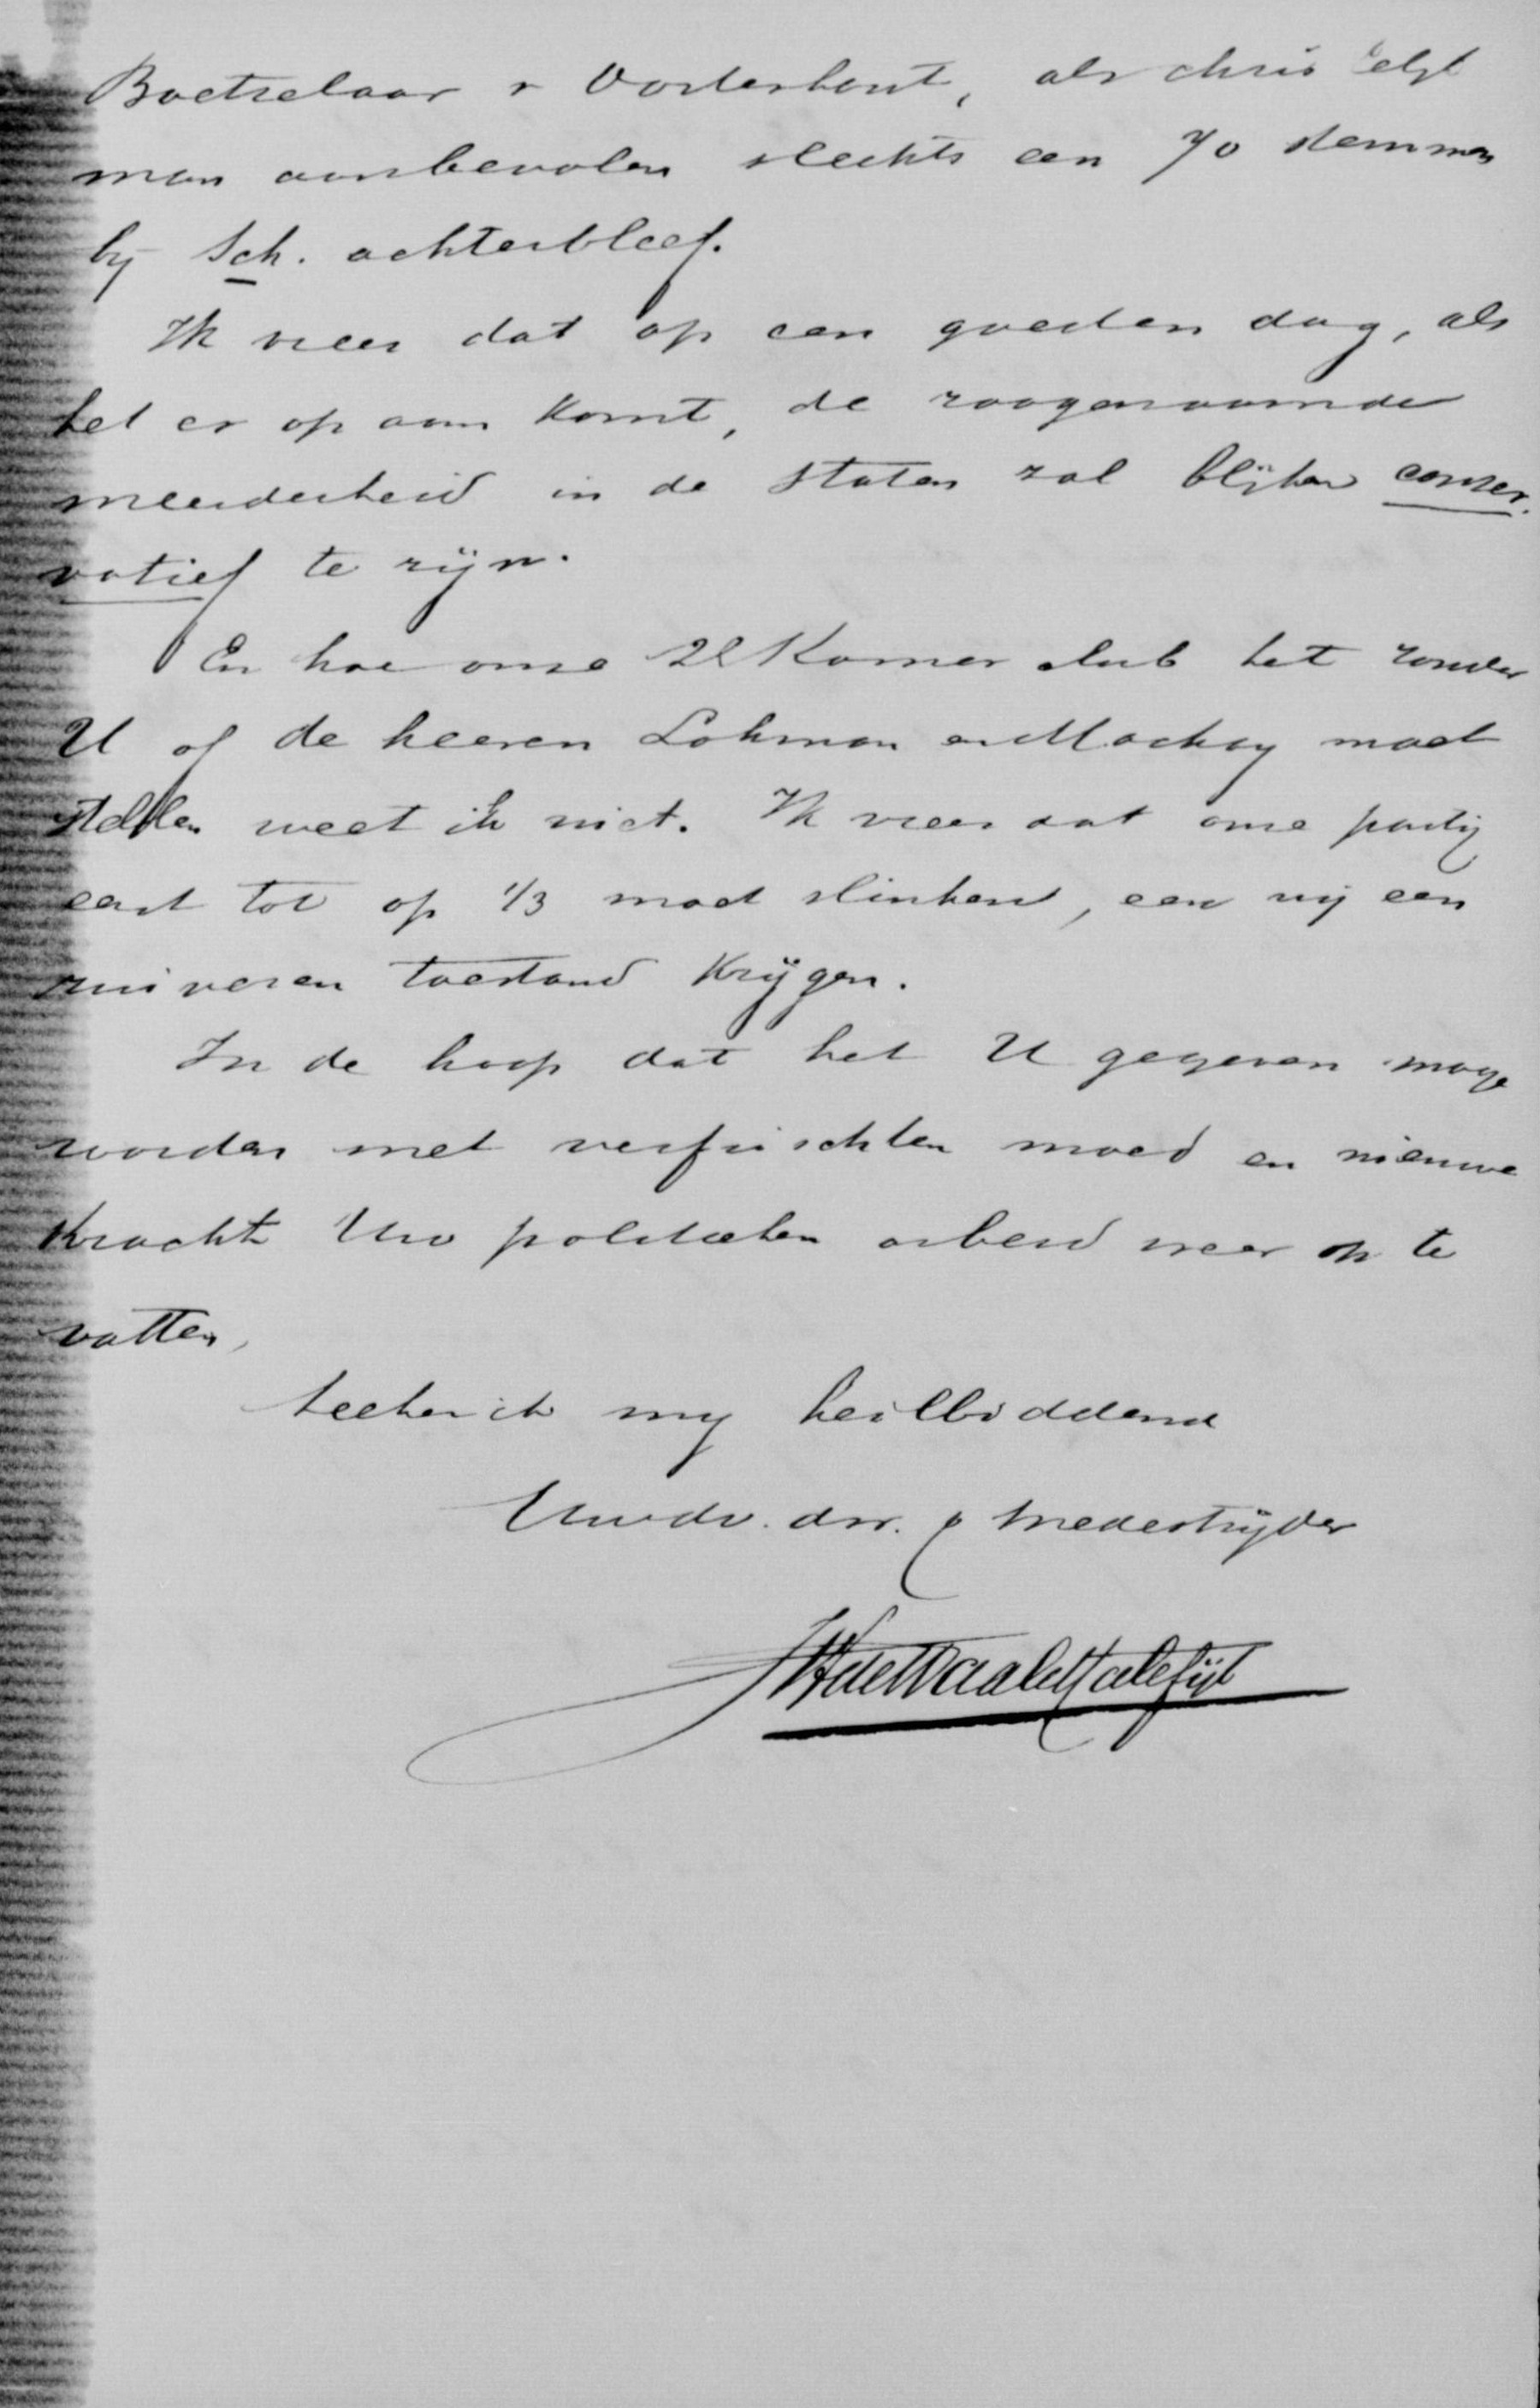 Boetzelaar v Oosterhout, als chris telijk
man aanbevolen slechts een 70 stemmen
bij Sch. achterbleef.
Ik vrees dat op een goeden dag, als
het er op aan komt, de zoogenaamde
meerderheid in de Staten zal blijken conser.
vatief te zijn.
En hoe onze 2e Kamer club het zonder
U of de heeren Lohman en Mackay moet
stellen weet ik niet. Ik vrees dat onze partij
eerst tot op 1/3 moet slinken, eer wij een
zuiveren toestand krijgen.
In de hoop dat het U gegeven moge
worden met verfrischten moed en nieuwe
kracht Uw politieken arbeid weer op te
vatten,
teeken ik mij heilbiddend
Uwdv. dnr. & medestrijder
JH de Waal Malefijt